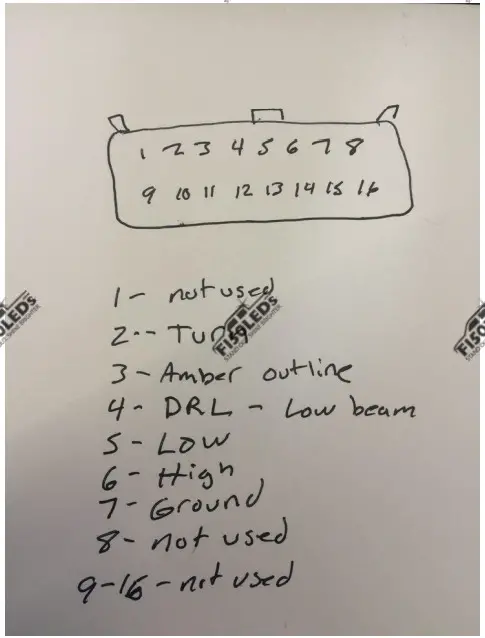 1 2 3 4 5 6 7 8
9 10 11 12 13 14 15 16
1 - not used
2 -- Turn
3 - Amber outline
4 - DRL - Low beam
5 - LOW
6 - High
7 - Ground
8 - not used
9-16 - not used
F150LEDS